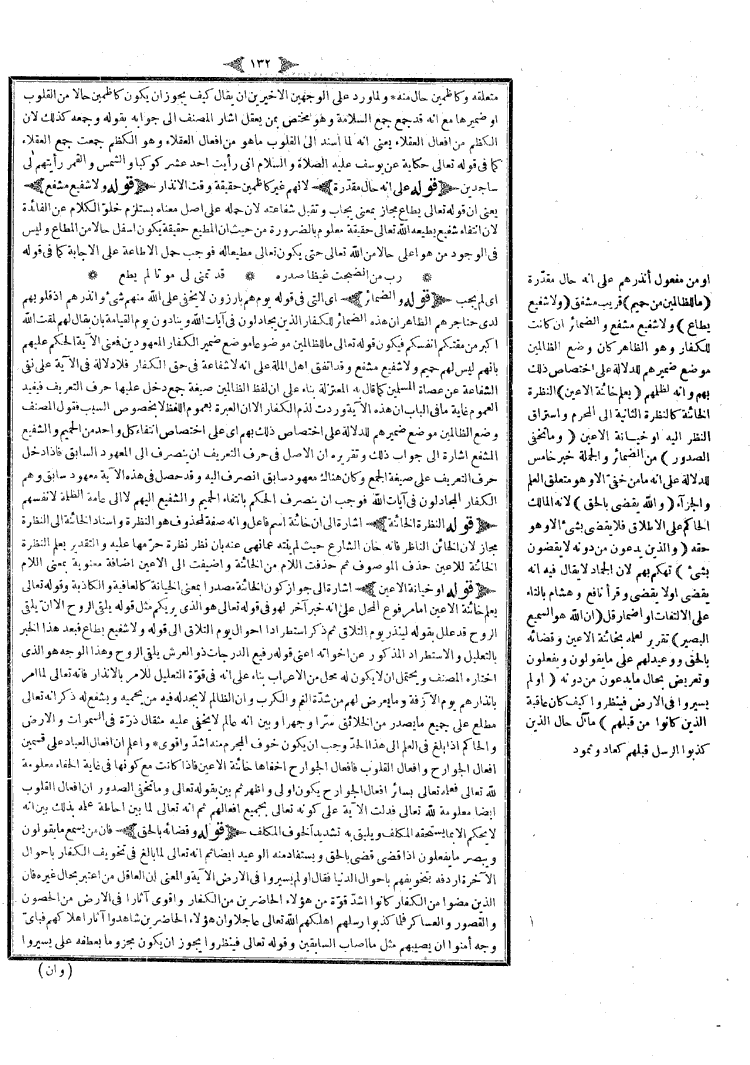 ﴿ ١٣٢ ﴾
متعلقه وكاظمين حال منه * ولما ورد على الوجهين الاخيرين ان يقال كيف يجوز ان يكون كاظمين حالا من القلوب
او ضميرها مع انه قد جمع جمع السلامة وهو مختص بمن يعقل اشار المصنف الى جوابه بقوله وجمعه كذلك لان
الكظم من افعال العقلاء يعنى انه لما اسند الى القلوب ماهو من افعال العقلاء وهو الكظم جمعت جمع العقلاء
كما فى قوله تعالى حكاية عن يوسف عليه الصلاة و السلام انى رأيت احد عشر كوكبا و الشمس و القمر رأيتهم لى
ساجدين ﴿ قوله على انه حال مقدرة ﴾ لانهم غير كاظمين حقيقة وقت الانذار ﴿ قوله ولا شفيع مشفع ﴾
يعنى ان قوله تعالى يطاع مجاز بمعنى يجاب و تقبل شفاعته لان حمله على اصل معناه يستلزم خلو الكلام عن الفائدة
لان انتفاء شفيع يطيعه الله تعالى حقيقة معلوم بالضرورة من حيث ان المطيع حقيقة يكون اسفل حالا من المطاع و ليس
فى الوجود من هو اعلى حالا من الله تعالى حتى يكون تعالى مطيعا له فوجب حمل الاطاعة على الاجابة كما فى قوله
* رب من انضجت غيظا صدره * قد تمنى لى موتا لم يطع *
اى لم يجب ﴿ قوله و الضمائر ﴾ اى التى فى قوله يوم هم بارزون لا يخفى على الله منهم شئ و انذرهم اذ قلوبهم
لدى حناجرهم الظاهر ان هذه الضمائر للكفار الذين يجادلون فى آيات الله و ينادون يوم القيامة بان يقال لهم لمقت الله
اكبر من مقتكم انفسكم فيكون قوله تعالى ما للظالمين موضوعا موضع ضمير الكفار المعهودين فمعنى الآية الحكم عليهم
بانهم ليس لهم حميم و لا شفيع مشفع و قد اتفق اهل الملة على انه لا شفاعة فى حق الكفار فلا دلالة فى الآية على نفى
الشفاعة عن عصاة المسلمين كما قال به المعتزلة بناء على ان لفظ الظالمين صيغة جمع دخل عليها حرف التعريف فيفيد
العموم غاية ما فى الباب ان هذه الآية وردت لذم الكفار الا ان العبرة بعموم اللفظ لا بخصوص السبب فقول المصنف
وضع الظالمين موضع ضميرهم للدلالة على اختصاص ذلك بهم اى على اختصاص انتفاء كل واحد من الحميم و الشفيع
المشفع اشارة الى جواب ذلك و تقريره ان الاصل فى حرف التعريف ان ينصرف الى المعهود السابق فاذا دخل
حرف التعريف على صيغة الجمع و كان هناك معهود سابق انصرف اليه و قد حصل فى هذه الآية معهود سابق و هم
الكفار المجادلون فى آيات الله فوجب ان ينصرف الحكم بانتفاء الحميم و الشفيع اليهم لا الى عامة الظلمة لانفسهم
﴿ قوله النظرة الخائنة ﴾ اشارة الى ان خائنة اسم فاعل و انه صفة لمحذوف هو النظرة و اسناد الخائنة الى النظرة
مجاز لان الخائن الناظر فانه خان الشارع حيث لم ينته عما نهى عنه بان نظر نظرة حرمها عليه و التقدير يعلم النظرة
الخائنة للاعين حذف الموصوف ثم حذفت اللام من الخائنة و اضيفت الى الاعين اضافة معنوية بمعنى اللام
﴿ قوله او خيانة الاعين ﴾ اشارة الى جواز كون الخائنة مصدرا بمعنى الخيانة كالعافية و الكاذبة و قوله تعالى
يعلم خائنة الاعين اما مرفوع المحل على انه خبر آخر لهو فى قوله تعالى هو الذى يريكم مثل قوله يلقى الروح الا ان يلقى
الروح قد علل بقوله لينذر يوم التلاق ثم ذكر استطرادا احوال يوم التلاق الى قوله و لا شفيع يطاع فبعد هذا الخبر
بالتعليل و الاستطراد المذكور عن اخواته اعنى قوله رفيع الدرجات ذو العرش يلقى الروح و هذا الوجه هو الذى
اختاره المصنف و يحتمل ان لا يكون له محل من الاعراب بناء على انه فى قوة التعليل للامر بالانذار فانه تعالى لما امر
بانذارهم يوم الآزفة و ما يعرض لهم من شدة الغم و الكرب و ان الظالم لا يجد له فيه من يحميه و يشفع له ذكر انه تعالى
مطلع على جميع ما يصدر من الخلائق سرا و جهرا و بين انه عالم لا يخفى عليه مثقال ذرة فى السموات و الارض
و الحاكم اذا بلغ فى العلم الى هذا الحد وجب ان يكون خوف المجرم منه اشد و اقوى * و اعلم ان افعال العباد على قسمين
افعال الجوارح و افعال القلوب فافعال الجوارح اخفاها خائنة الاعين فاذا كانت مع كونها فى غاية الخفاء معلومة
لله تعالى فعلمه تعالى بسائر افعال الجوارح يكون اولى و اظهر ثم بين بقوله تعالى و ما تخفى الصدور ان افعال القلوب
ايضا معلومة لله تعالى فدلت الآية على كونه تعالى بجميع افعالهم ثم انه تعالى لما بين احاطة علمه بذلك بين انه
لا يحكم الا بما يستحقه المكلف و يليق به تشديدا لخوف المكلف ﴿ قوله و قضائه بالحق ﴾ فان من يسمع ما يقولون
و يبصر ما يفعلون اذا قضى قضى بالحق و يستفاد منه الوعيد ايضا ثم انه تعالى لما بالغ فى تخويف الكفار باحوال
الآخرة اردفه بتخويفهم باحوال الدنيا فقال اولم يسيروا فى الارض الآية و المعنى ان العاقل من اعتبر بحال غيره فان
الذين مضوا من الكفار كانوا اشد قوة من هؤلاء الحاضرين من الكفار و اقوى آثارا فى الارض من الحصون
و القصور و العساكر فلما كذبوا رسلهم اهلكهم الله تعالى عاجلا و ان هؤلاء الحاضرين شاهدوا آثار اهلاكهم فبأى
وجه أمنوا ان يصيبهم مثل ما اصاب السابقين و قوله تعالى فينظروا يجوز ان يكون مجزوما بعطفه على يسيروا
( و ان )
او من مفعول أنذرهم على انه حال مقدرة
( ما للظالمين من حميم ) قريب مشفق ( ولا شفيع
يطاع ) ولا شفيع مشفع و الضمائر ان كانت
للكفار و هو الظاهر كان وضع الظالمين
موضع ضميرهم للدلالة على اختصاص ذلك
بهم و انه لظلمهم ( يعلم خائنة الاعين ) النظرة
الخائنة كالنظرة الثانية الى المحرم و استراق
النظر اليه او خيانة الاعين ( و ما تخفى
الصدور ) من الضمائر و الجملة خبر خامس
للدلالة على انه ما من خفى الا و هو متعلق العلم
و الجزاء ( و الله يقضى بالحق ) لانه المالك
الحاكم على الاطلاق فلا يقضى بشئ الا و هو
حقه ( و الذين يدعون من دونه لا يقضون
بشئ ) تهكم بهم لان الجماد لا يقال فيه انه
يقضى او لا يقضى و قرأ نافع و هشام بالتاء
على الالتفات او اضمار قل ( ان الله هو السميع
البصير ) تقرير لعلمه بخائنة الاعين و قضائه
بالحق و وعيد لهم على ما يقولون و يفعلون
و تعريض بحال ما يدعون من دونه ( اولم
يسيروا فى الارض فينظروا كيف كان عاقبة
الذين كانوا من قبلهم ) مآل حال الذين
كذبوا الرسل قبلهم كعاد و ثمود